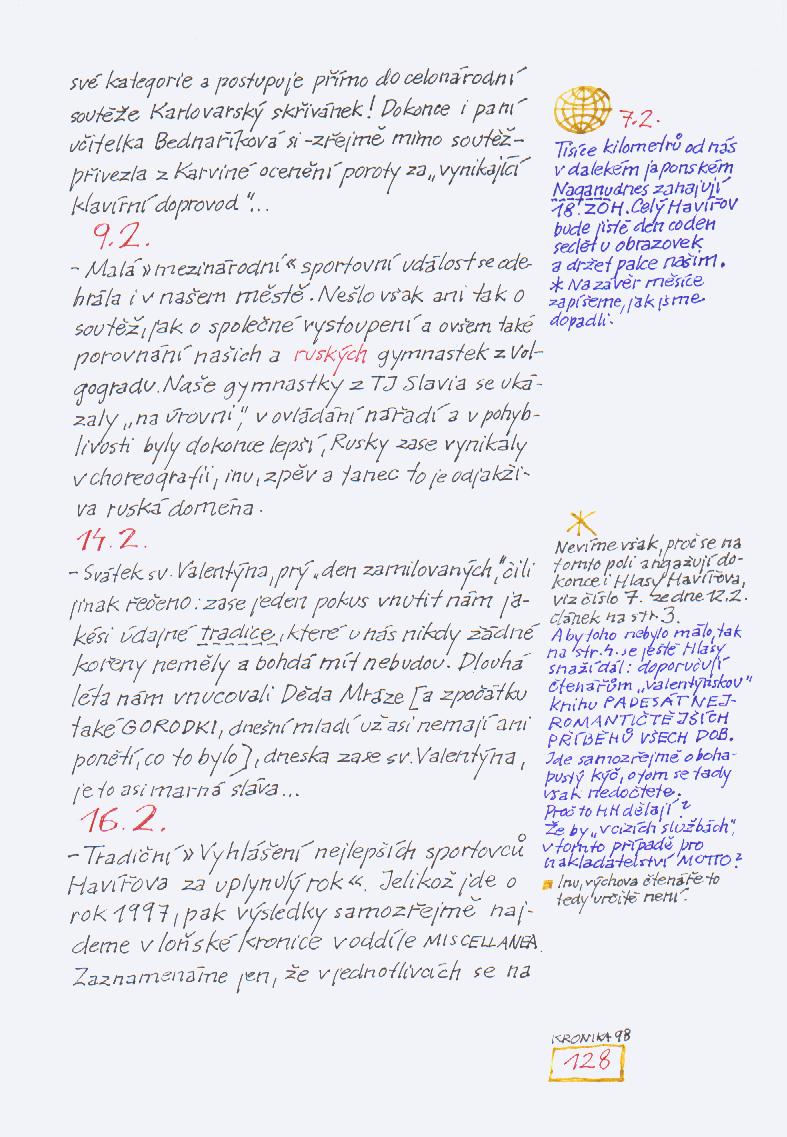 své kategorie a postupuje přímo do celonárodní
soutěže Karlovarský skřivánek! Dokonce i paní
učitelka Bednaříková si -zřejmě mimo soutěž-
přivezla z Karviné ocenění poroty za „vynikající
klavírní doprovod"...
9.2.
- Malá »mezinárodní« sportovní událost se ode-
hrála i v našem městě. Nešlo však ani tak o
soutěž, jak o společné vystoupení a ovšem také
porovnání našich a ruských gymnastek z Vol-
gogradu. Naše gymnastky z TJ Slavia se uká-
zaly „na úrovni", v ovládání nářadí a v pohyb-
livosti byly dokonce lepší, Rusky zase vynikaly
v choreografii, inu, zpěv a tanec to je odjakži-
va ruská doména.
14.2.
- Svátek sv. Valentýna, prý „den zamilovaných," čili
jinak řečeno: zase jeden pokus vnutit nám ja-
kési údajné tradice, které u nás nikdy žádné
kořeny neměly a bohdá mít nebudou. Dlouhá
léta nám vnucovali Děda Mráze [a zpočátku
také GORODKI, dnešní mladí už asi nemají ani
ponětí, co to bylo], dneska zase sv. Valentýna,
je to asi marná sláva...
16.2.
- Tradiční » Vyhlášení nejlepších sportovců
Havířova za uplynulý rok «. Jelikož jde o
rok 1997, pak výsledky samozřejmě naj-
deme v loňské kronice v oddíle MISCELLANEA.
Zaznamenáme jen, že v jednotlivcích se na
7.2.
Tisíce kilometrů od nás
v dalekém japonském
Naganu dnes zahajují
18. ZOH. Celý Havířov
bude jistě den co den
sedět u obrazovek
a držet palce našim.
* Na závěr měsíce
zapíšeme, jak jsme
dopadli.
Nevíme však, proč se na
tomto poli angažují do-
konce i Hlasy Havířova,
viz číslo 7. ze dne 12.2.
článek na str. 3.
Aby toho nebylo málo, tak
na str. 4. se ještě Hlasy
snaží dál: doporučují
čtenářům „valentýnskou"
knihu PADESÁT NEJ-
ROMANTIČTĚJŠÍCH
PŘÍBĚHŮ VŠECH DOB.
Jde samozřejmě o boha-
pustý kýč, o tom se tady
však nedočtete.
Proč to HH dělají?
Že by „v cizích službách",
v tomto případě pro
nakladatelství MOTTO?
Inu, výchova čtenáře to
tedy určitě není.
KRONIKA 98
128